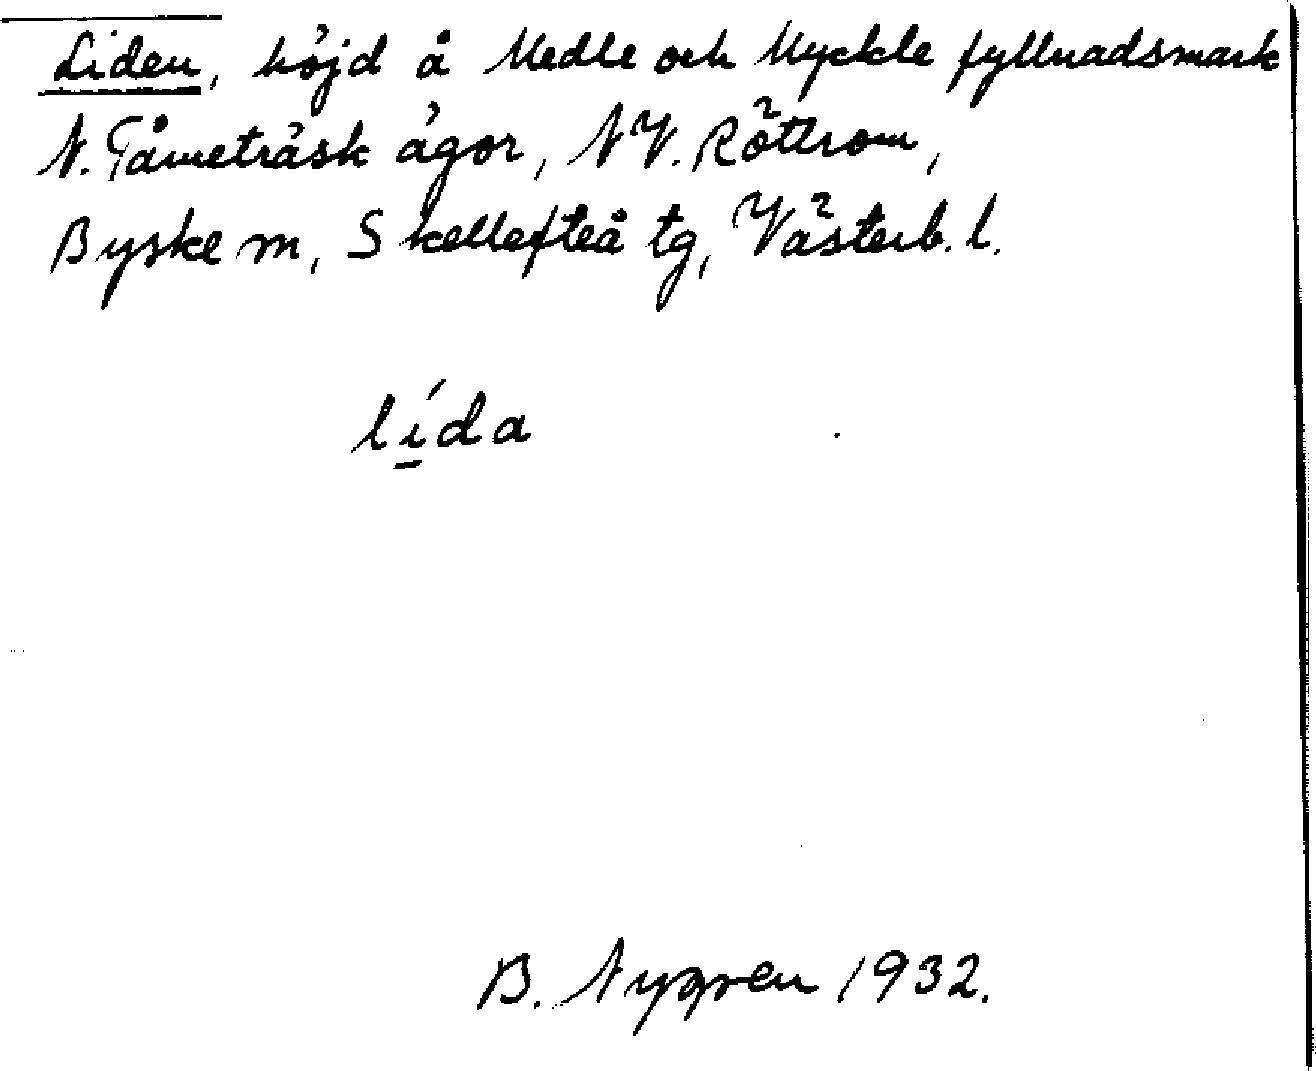 Liden, höjd å Medle och Myckle fyllnadsmark
N. Tåmeträsk ägor, NV. Röttrom,
Byske sn, Skellefteå tg, Västerb. l.
lída
B. Nygren 1932.